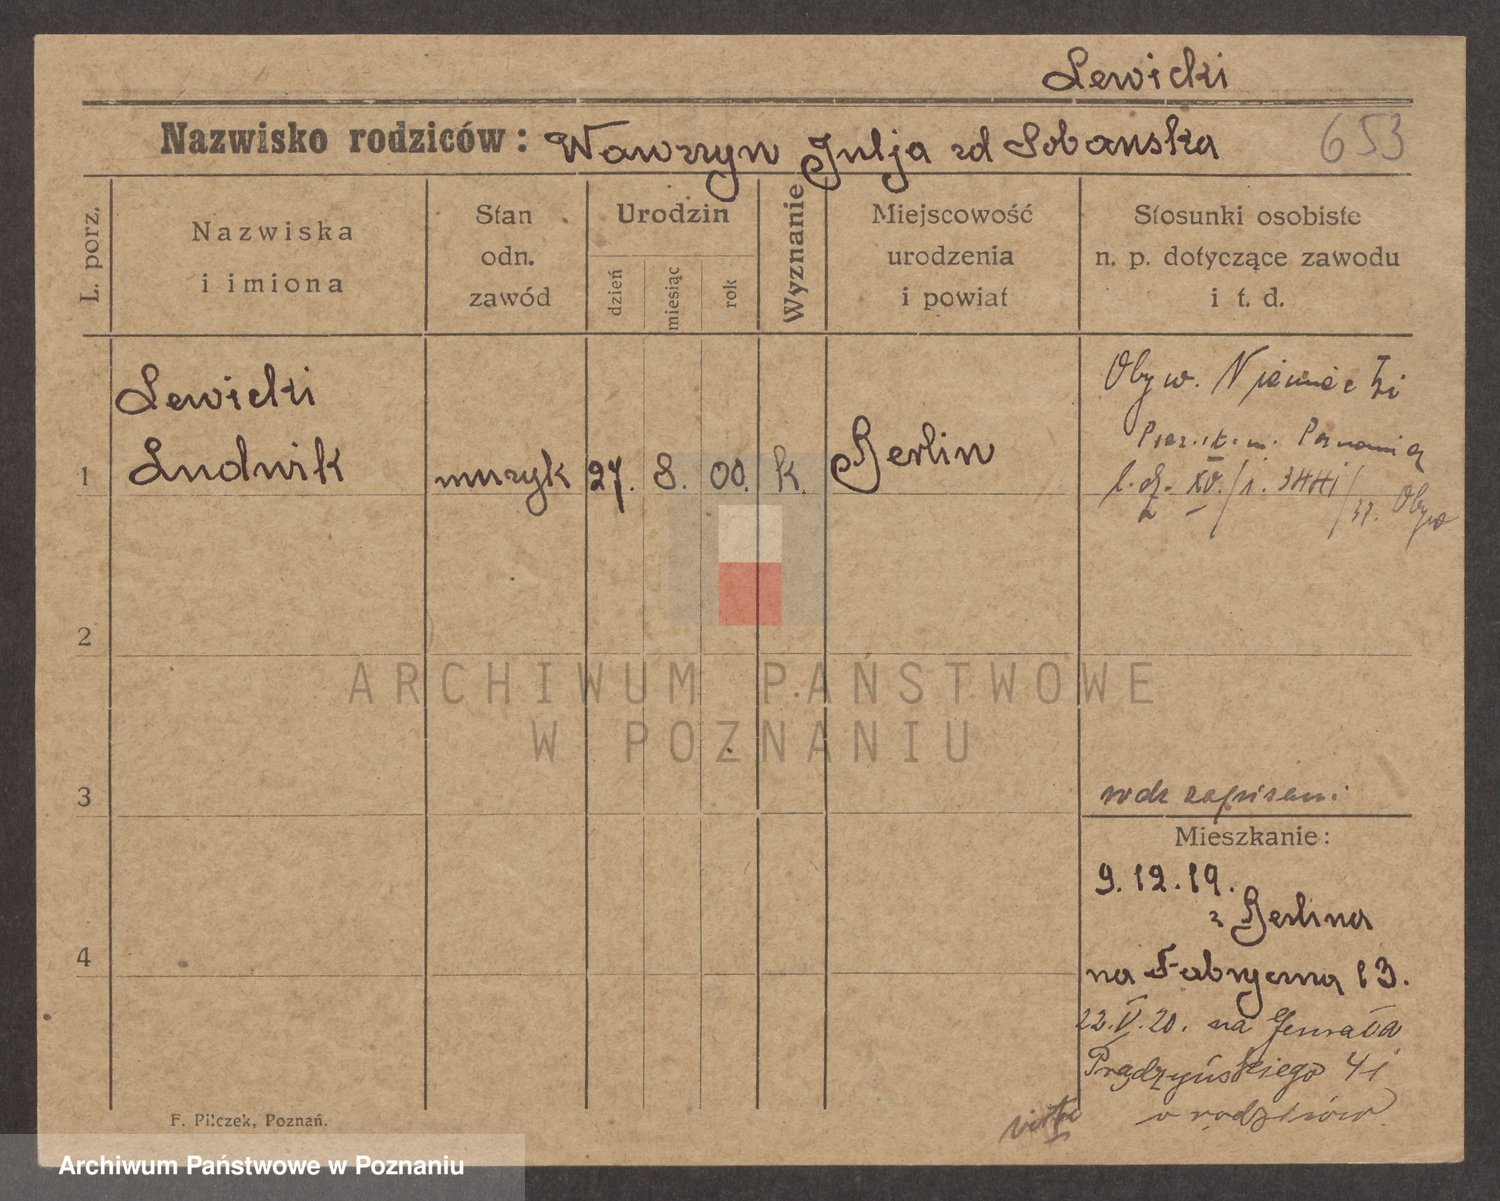 Lewicki
Nazwisko rodziców: Wawrzyn Julja zd Sobanska 653
L. porz.
Nazwiska
i imiona
Stan
odn.
zawód
Urodzin
dzień
miesiąc
rok
Wyznanie
Miejscowość
urodzenia
i powiat
Stosunki osobiste
n. p. dotyczące zawodu
i t. d.
1
Lewicki
Ludwik
muzyk 27. 8. 00. k. Berlin
Obyw. Niemiecki
l. dz. XV.
Obyw
2
3
4
ARCHIWUM PAŃSTWOWE
W POZNANIU
rodz zapisani
Mieszkanie:
9.12.19.
z Berlina
na Fabryczna 13.
22.V.20. na Generała
Prądzyńskiego 41
u rodziców
F. Pilczek, Poznań.
Archiwum Państwowe w Poznaniu